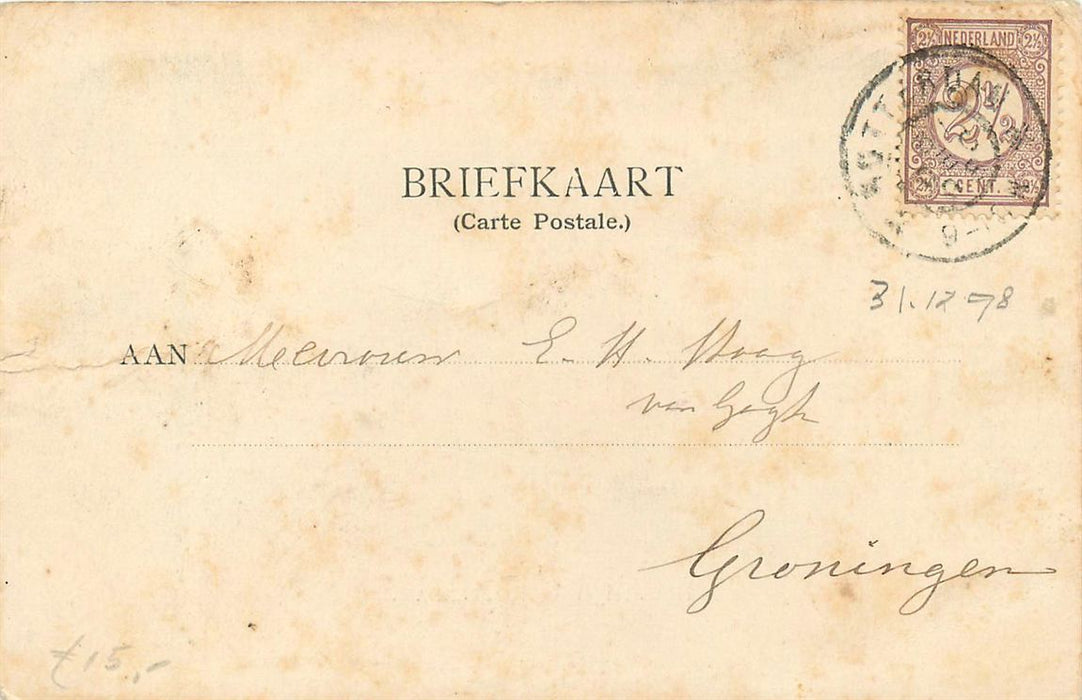 2½ NEDERLAND 2½
2½
2½ CENT. 2½
ROTTERDAM
BRIEFKAART
(Carte Postale.)
31.12 98
AAN Mevrouw E. H. Haag
van Gogh
Groningen
£15,-